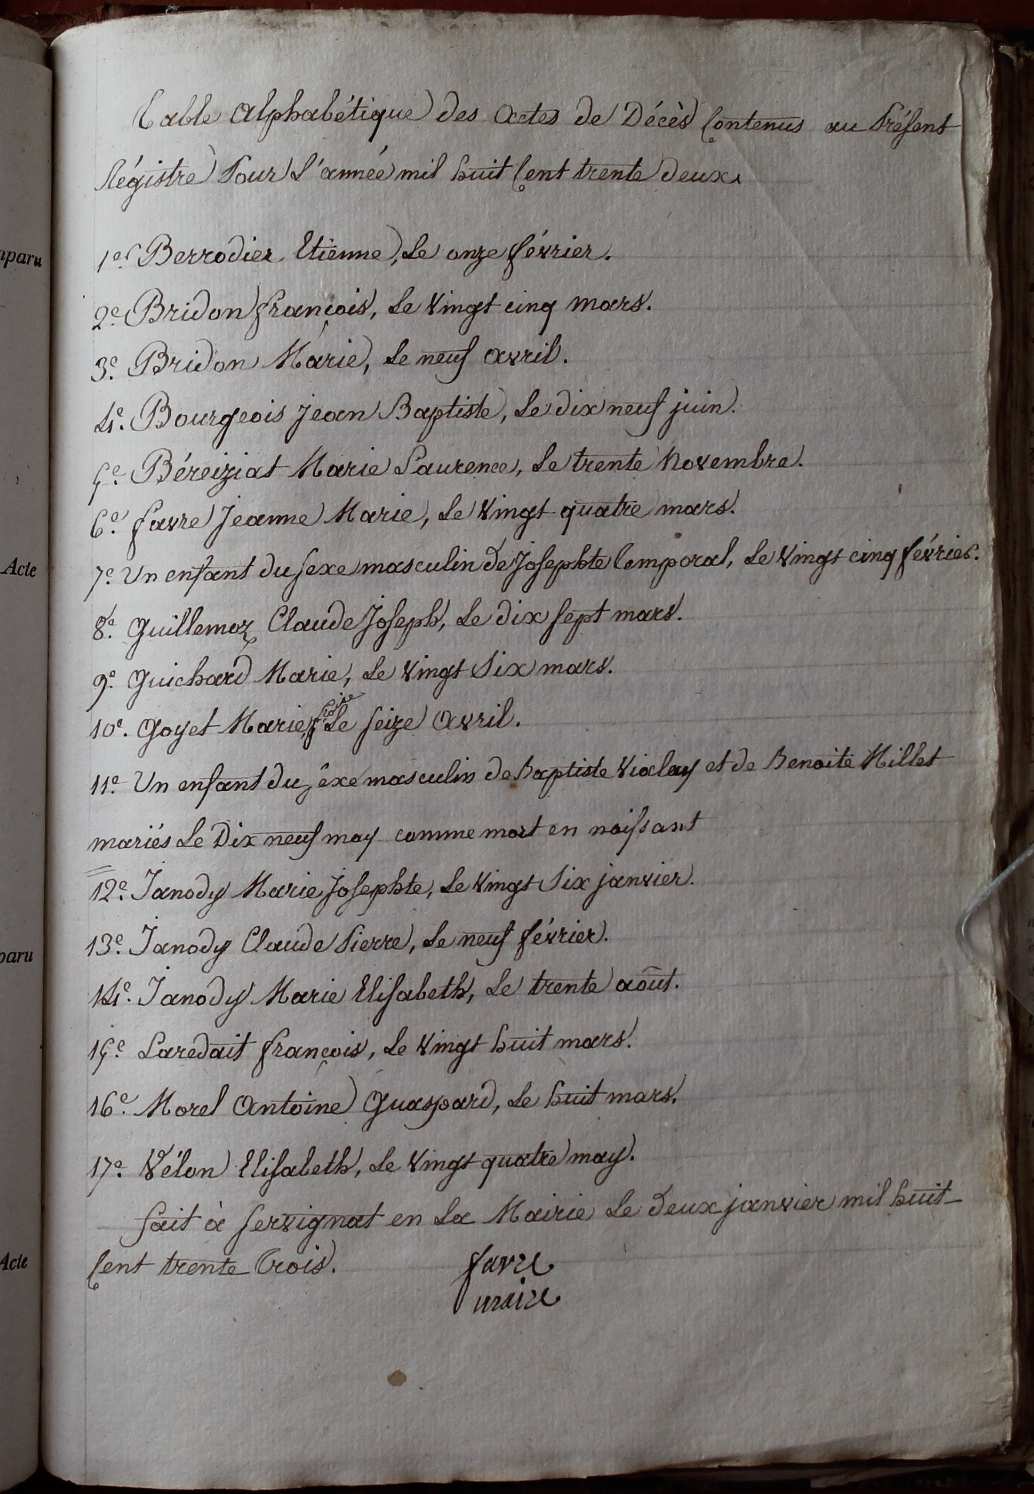 Table Alphabétique des Actes de Décès Contenus au Présent
Régistre Pour l'année mil huit Cent trente deux.
1e. Berrodier Etienne, Le onze février.
2e. Bridon françois, Le Vingt cinq mars.
3e. Bridon Marie, Le neuf avril.
4e. Bourgeois jean Baptiste, Le dix neuf juin.
5e. Béreiziat Marie Laurence, Le trente Novembre.
6e. favre Jeanne Marie, Le Vingt quatre mars.
7e. Un enfant du sexe masculin de Josephte Temporal, Le Vingt cinq février.
8e. Guillemoz Claude Joseph, Le dix sept mars.
9e. Guichard Marie, Le Vingt Six mars.
10e. Goyet Marie, Le seize Avril.
11e. Un enfant du sexe masculin de Baptiste Violay et de Benoite Millet
mariés Le Dix neuf may comme mort en naissant
12e. Janody Marie Josephte, Le Vingt Six janvier.
13e. Janody Claude Pierre, Le neuf février.
14e. Janody Marie Elisabeth, Le trente août.
15e. Laredait françois, Le Vingt huit mars.
16e. Morel Antoine Guaspard, Le huit mars.
17e. Vélon Elisabeth, Le Vingt quatre may.
fait à Servignat en La Mairie Le deux janvier mil huit
Cent trente Trois.
favre
maire
mparu
Acte
paru
Acte